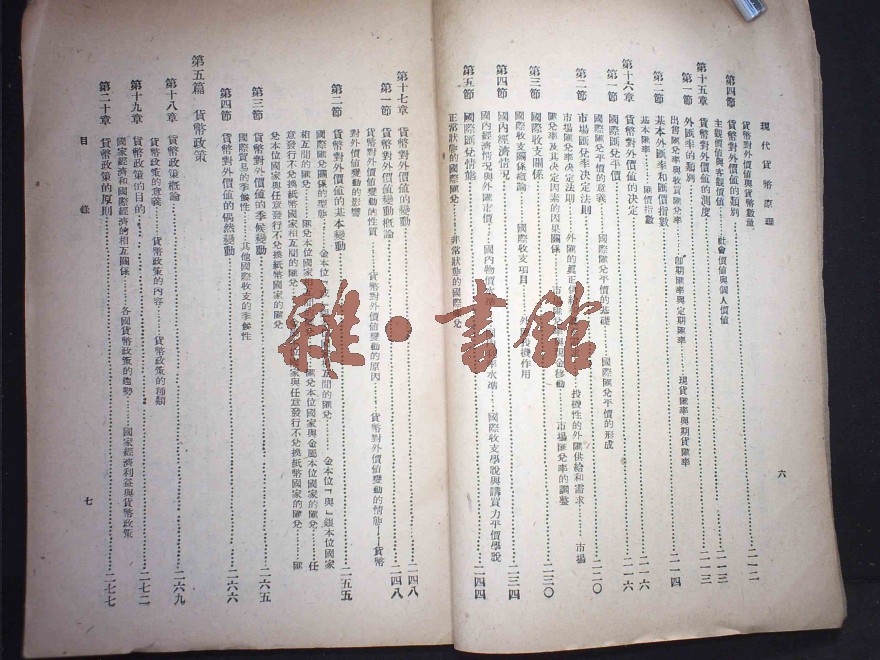 現代貨幣原理 六
貨幣對外價值與貨幣數量
第四節 貨幣對外價值的類別……二一二
主觀價值與客觀價值——社會價值與個人價值
第十五章 貨幣對外價值的測度……二一三
第一節 外匯率的類別……二一三
出售匯兌率與收買匯兌率——即期匯率與定期匯率——現貨匯率與期貨匯率
第二節 基本外匯率和匯價指數……二一四
基本匯率——匯價指數
第十六章 貨幣對外價值的決定……二一六
第一節 國際匯兌平價……二一六
國際匯兌平價的意義——國際匯兌平價的基礎——國際匯兌平價的形成
第二節 市場匯兌率決定法則……二二〇
市場匯兌率決定法則——外匯的眞正供給——投機性的外匯供給和需求——市場
匯兌率及其決定因素的因果關係——市場移動——市場匯兌率的調整
第三節 國際收支關係……二三〇
國際收支關係槪論——國際收支項目——外投機作用
第四節 國內經濟情況……二三四
國內經濟情況與外匯市價——國內物價水準——國際收支學說與購買力平價學說
第五節 國際匯兌情態……二四四
正常狀態的國際匯兌——非常狀態的國際匯兌
第十七章 貨幣對外價值的變動……二四八
第一節 貨幣對外價值變動槪論……二四八
貨幣對外價值變動的性質——貨幣對外價值變動的原因——貨幣對外價值變動的情態——貨幣
對外價值變動的影響
第二節 貨幣對外價值的基本變動……二五五
國際匯兌關係的型態——金本位國家相互間的匯兌——金本位「與」銀本位國家
相互間的匯兌——匯兌本位國家相互間的匯兌——匯兌本位國家與金屬本位國家的匯兌——任
意發行不兌換紙幣國家相互間的匯兌——位國家與任意發行不兌換紙幣國家的匯兌——匯
兌本位國家與任意發行不兌換紙幣國家的匯兌
第三節 貨幣對外價值的季候變動……二六五
國際貿易的季候性——其他國際收支的季候性
第四節 貨幣對外價值的偶然變動……二六六
第五篇 貨幣政策
第十八章 貨幣政策槪論……二六九
貨幣政策的意義——貨幣政策的內容——貨幣政策的種類
第十九章 貨幣政策的目的……二七二
國家經濟和國際經濟的相互關係——各國貨幣政策的趨勢——國家經濟利益與貨幣政策
第二十章 貨幣政策的原則……二七七
目錄 七
雜·書館